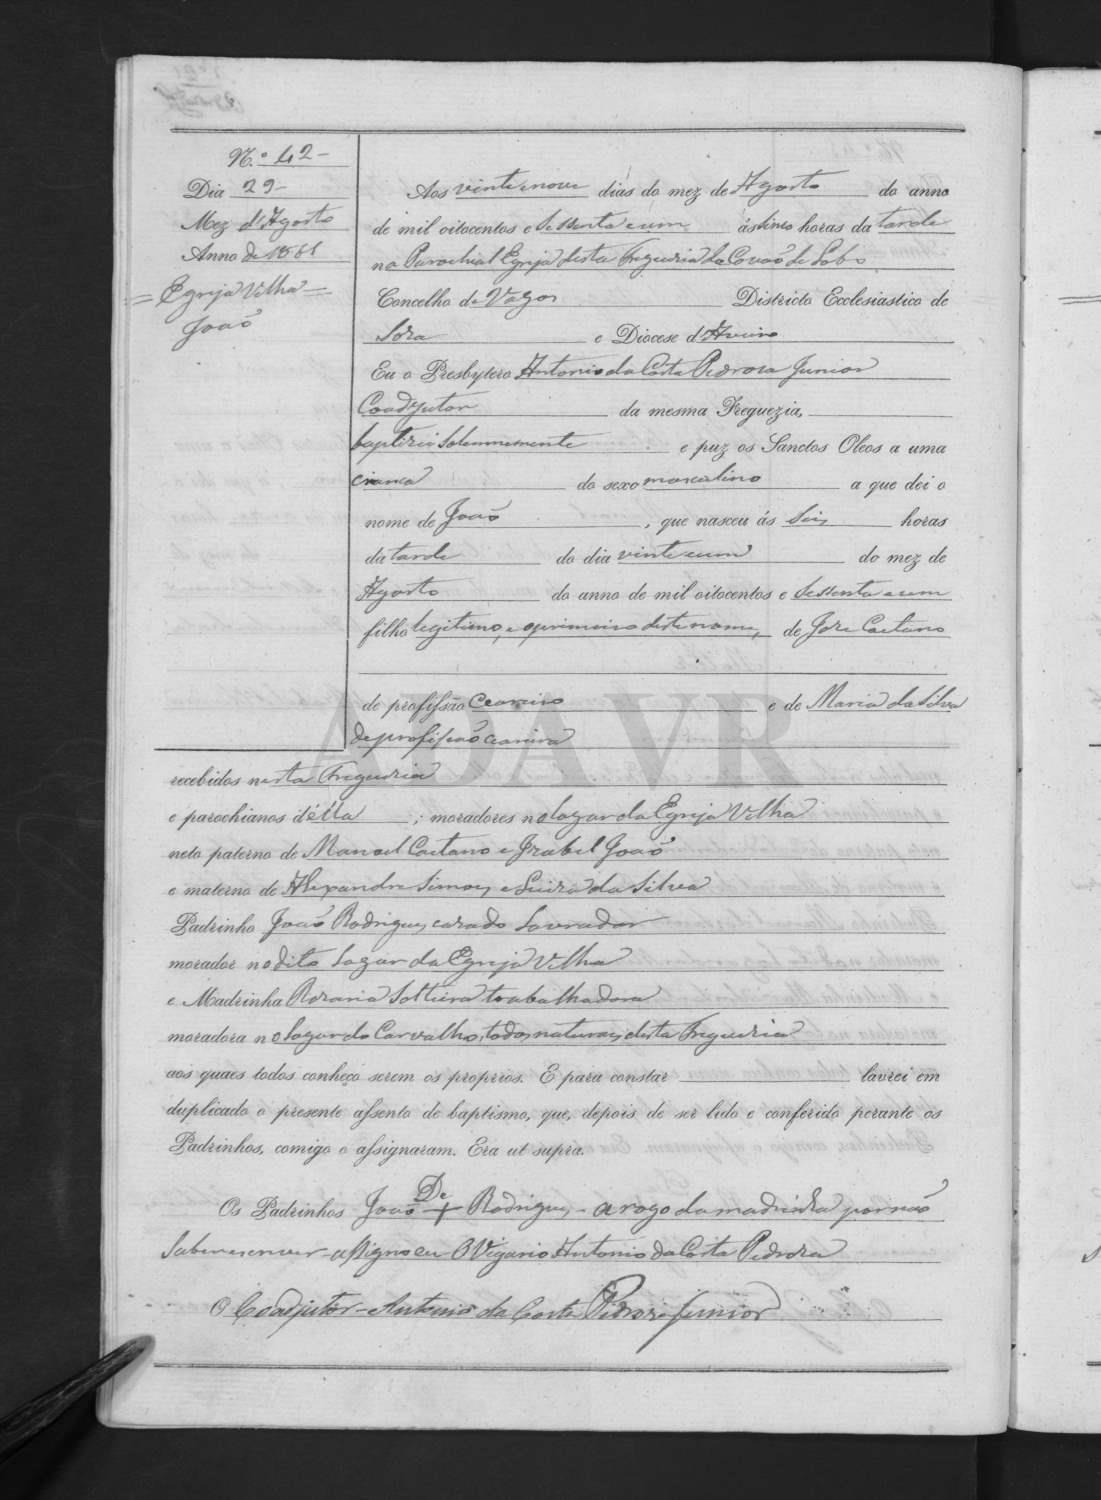 N.º 42-
Dia 29-
Mez d'Agosto
Anno de 1861
=Egreja Velha=
João
Aos vinte e nove dias do mez de Agosto do anno
de mil oitocentos e Sessenta e um ás cinco horas da tarde
na Parochial Egreja desta Freguezia da Covão do Lobo
Concelho de Vagos Districto Ecclesiastico de
Soza e Diocese d'Aveiro
Eu o Presbytero Antonio da Costa Pedroza Junior
Coadjutor da mesma Freguezia,
baptizei Solemnemente e puz os Sanctos Oleos a uma
crianca do sexo masculino a que dei o
nome de João, que nasceu ás Seis horas
da tarde do dia vinte e um do mez de
Agosto do anno de mil oitocentos e Sessenta e um
filho legitimo, e o primeiro deste nome, de Joze Caetano
de profissão Ceareiro e de Maria da Silva
de profissão ceareira
recebidos nesta Freguezia
e parochianos d'élla; moradores no logar da Egreja Velha
neto paterno de Manoel Caetano e Izabel João
e materno de Alexandre Simoes e Luiza da Silva
Padrinho João Rodrigues, cazado Lavrador
morador no dito Logar da Egreja Velha
e Madrinha Rozaria Solteira trabalhadora
moradora no Logar do Carvalho, todos naturaes desta Freguezia
aos quaes todos conheço serem os proprios. E para constar lavrei em
duplicado o presente assento de baptismo, que, depois de ser lido e conferido perante os
Padrinhos, comigo o assignaram. Era ut supra.
Os Padrinhos João De + Rodrigues - a rogo da madrinha por não
Saber escrever - assigno eu O Vigario Antonio da Costa Pedroza
O Coadjutor - Antonio da Costa Pedroza Junior
ADAVR